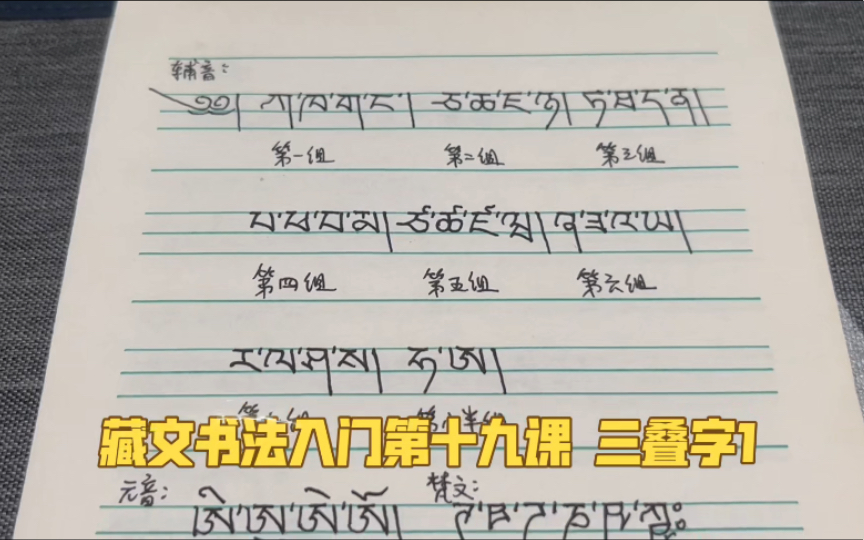 辅音：
༄༅། ཀ་ཁ་ག་ང་། ཅ་ཆ་ཇ་ཉ། ཏ་ཐ་ད་ན།
第一组 第二组 第三组
པ་ཕ་བ་མ། ཙ་ཚ་ཛ་ཝ། ཞ་ཟ་འ་ཡ།
第四组 第五组 第六组
ར་ལ་ཤ་ས། ཧ་ཨ།
藏文书法入门第十九课 三叠字1
元音： 梵文：
ཨི་ཨུ་ཨེ་ཨོ།